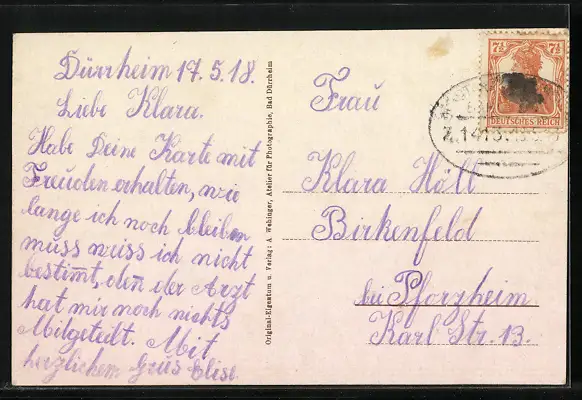 Dürrheim 17.5.18.
Liebe Klara.
Habe Deine Karte mit
Freuden erhalten, wie
lange ich noch bleiben
muss weiss ich nicht
bestimt, den der Arzt
hat mir noch nichts
Mitgeteilt. Mit
herzlichem Grus Elise
Original-Eigentum u. Verlag: A. Webinger, Atelier für Photographie, Bad Dürrheim
7½ 7½
DEUTSCHES REICH
Frau
Klara Höll
Birkenfeld
bei Pforzheim
Karl Str. 13.